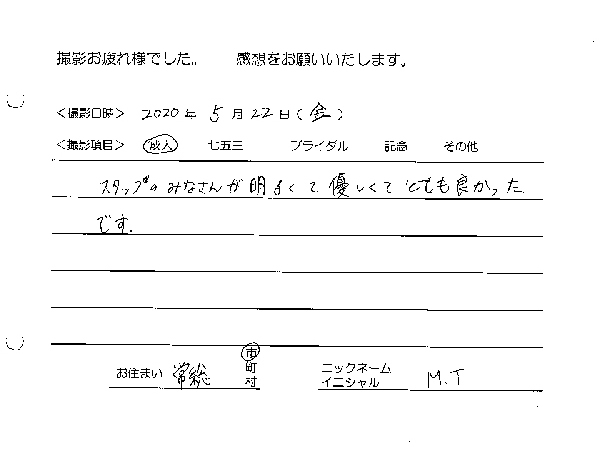 撮影お疲れ様でした。 感想をお願いいたします。
<撮影日時> 2020年 5月22日(金)
<撮影項目> 成人 七五三 ブライダル 記念 その他
スタッフのみなさんが明るくて優しくてとても良かった
です。
お住まい 常総 市 町 村 ニックネーム イニシャル M.T